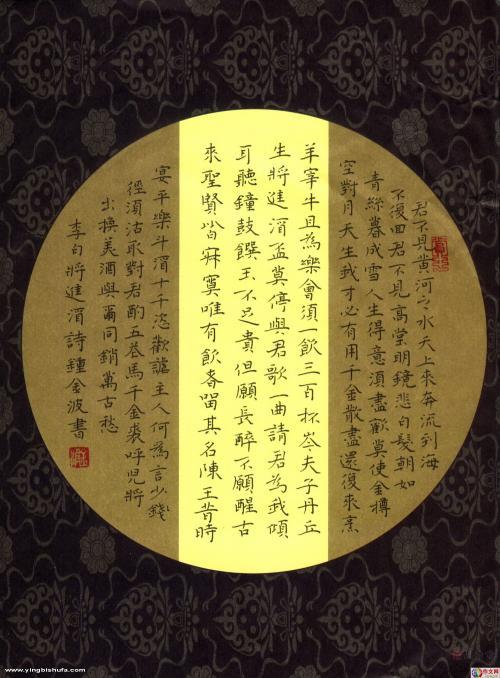 君不見黄河之水天上來奔流到海
不復回君不見高堂明鏡悲白髮朝如
青絲暮成雪人生得意須盡歡莫使金樽
空對月天生我才必有用千金散盡還復來烹
羊宰牛且為樂會須一飲三百杯岑夫子丹丘
生將進酒盃莫停與君歌一曲請君為我傾
耳聽鐘鼓饌玉不足貴但願長醉不願醒古
來聖賢皆寂寞唯有飲者留其名陳王昔時
宴平樂斗酒十千恣歡謔主人何為言少錢
徑須沽取對君酌五花馬千金裘呼兒將
出換美酒與爾同銷萬古愁
李白將進酒詩鍾金波書
www.yingbishufa.com